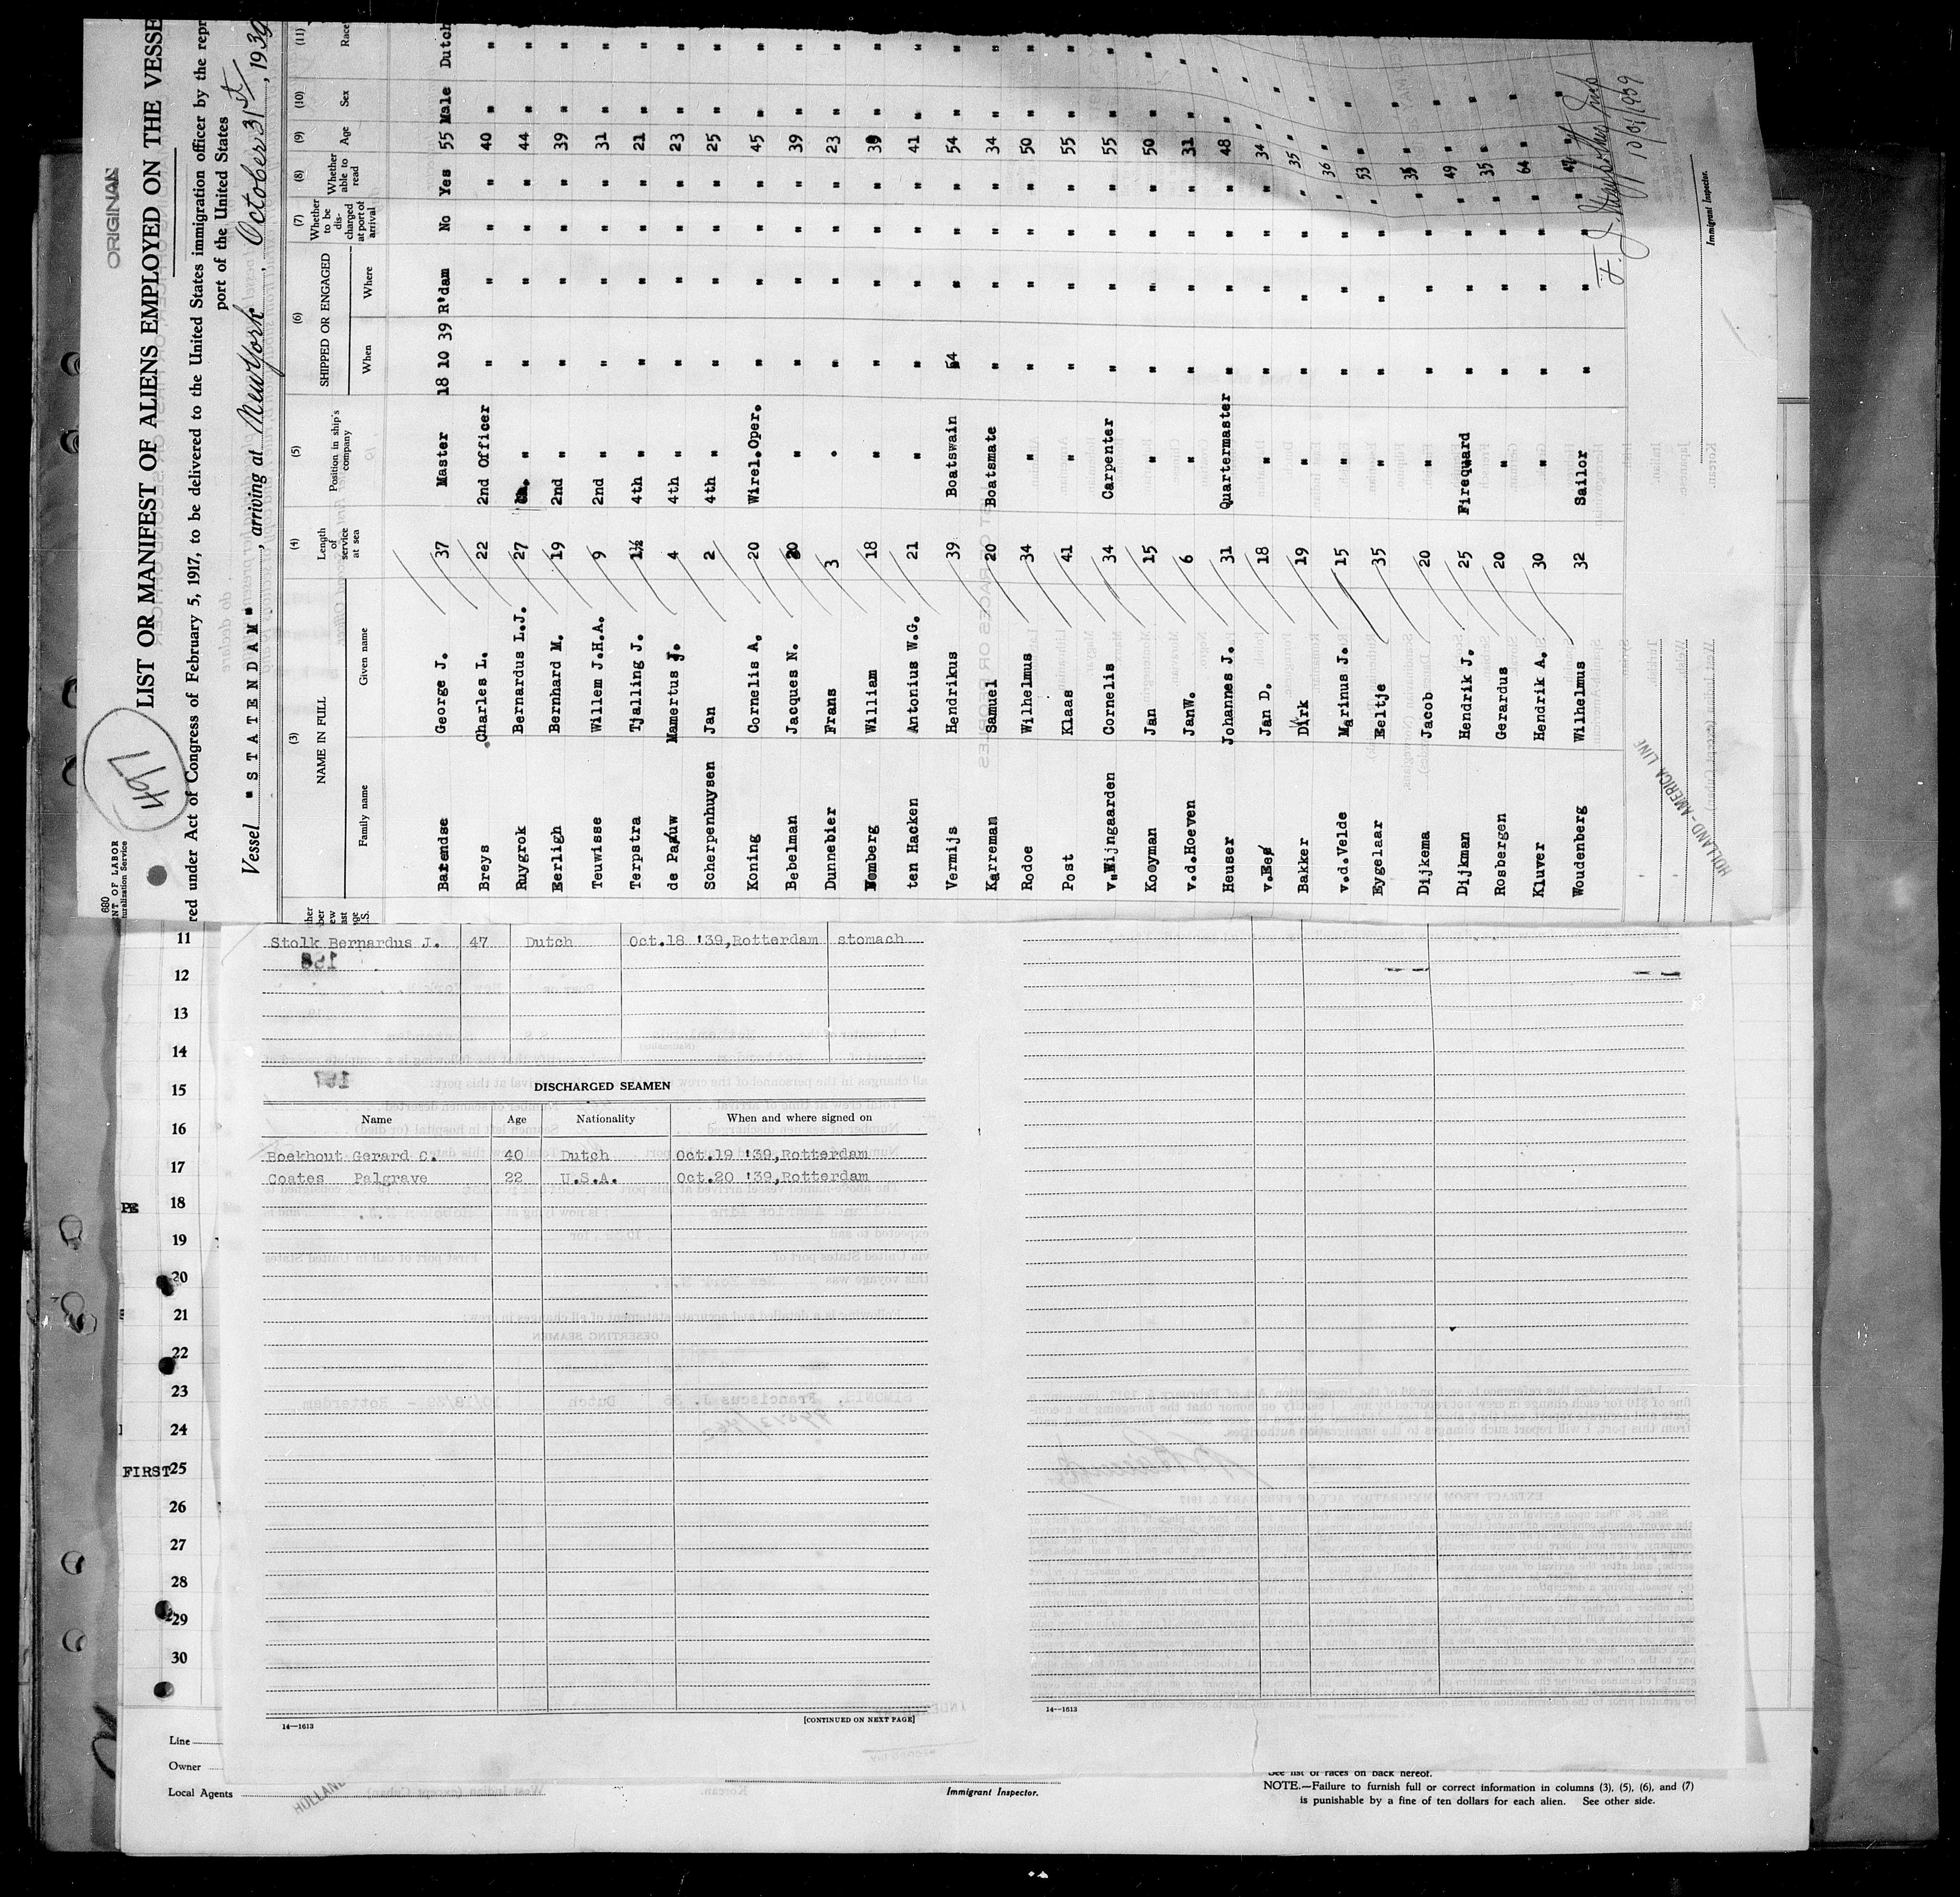 ORIGINAL
497
680
NT OF LABOR
turalization Service
LIST OR MANIFEST OF ALIENS EMPLOYED ON THE VESSE
red under Act of Congress of February 5, 1917, to be delivered to the United States immigration officer by the repr
port of the United States
Vessel "STATENDAM", arriving at New York, October 31st, 1939
(3) (4) (5) (6) (7) (8) (9) (10) (11)
NAME IN FULL Length of service at sea Position in ship's company SHIPPED OR ENGAGED Whether to be discharged at port of arrival Whether able to read Age Sex Race
Family name Given name When Where
Barendse George J. 37 Master 18 10 39 R'dam No Yes 55 Male Dutch
Breys Charles L. 22 2nd Officer " " " " 40 " "
Ruygrok Bernardus L.J. 27 " " " " " 44 " "
Eerligh Bernhard M. 19 2nd " " " " " 39 " "
Teuwisse Willem J.H.A. 9 2nd " " " " " 31 " "
Terpstra Tjalling J. 1½ 4th " " " " " 21 " "
de Pauw Mamertus J. 4 4th " " " " " 23 " "
Scherpenhuysen Jan 2 4th " " " " " 25 " "
Koning Cornelis A. 20 Wirel.Oper. " " " " 45 " "
Bebelman Jacques N. 20 " " " " " 39 " "
Dunnebier Frans 3 " " " " " 23 " "
Nomberg William 18 " " " " " 39 " "
ten Hacken Antonius W.G. 21 " " " " " 41 " "
Vermijs Hendrikus 39 Boatswain 54 " " " 54 " "
Karreman Samuel 20 Boatsmate " " " " 34 " "
Rodoe Wilhelmus 34 " " " " " 50 " "
Post Klaas 41 " " " " " 55 " "
v.Wijngaarden Cornelis 34 Carpenter " " " " 55 " "
Kooyman Jan 15 " " " " " 50 " "
v.d.Hoeven JanW. 6 " " " " " 31 " "
Heuser Johannes J. 31 Quartermaster " " " " 48 " "
v.Ee Jan D. 18 " " " " " 34 " "
Bakker Dirk 19 " " " " " 35 " "
v.d.Velde Marinus J. 15 " " " " " 36 " "
Eygelaar Eeltje 35 " " " " " 53 " "
Dijkema Jacob 20 " " " " " 35 " "
Dijkman Hendrik J. 25 Fireguard " " " " 49 " "
Rosbergen Gerardus 20 " " " " " 35 " "
Kluver Hendrik A. 30 " " " " " 64 " "
Woudenberg Wilhelmus 32 Sailor " " " " 47 " "
10/31/1939
Immigrant Inspector.
HOLLAND-AMERICA LINE
11 Stolk Bernardus J. 47 Dutch Oct.18 '39,Rotterdam stomach
12
13
14
15
DISCHARGED SEAMEN
16 Name Age Nationality When and where signed on
17 Boekhout Gerard C. 40 Dutch Oct.19 '39,Rotterdam
Coates Palgrave 22 U.S.A. Oct.20 '39,Rotterdam
18
PE
19
20
21
22
23
24
FIRST 25
26
27
28
29
30
14—1613 [CONTINUED ON NEXT PAGE] 14—1613
Line
Owner
Local Agents
HOLLAND
Immigrant Inspector.
See list of races on back hereof.
NOTE.—Failure to furnish full or correct information in columns (3), (5), (6), and (7)
is punishable by a fine of ten dollars for each alien. See other side.